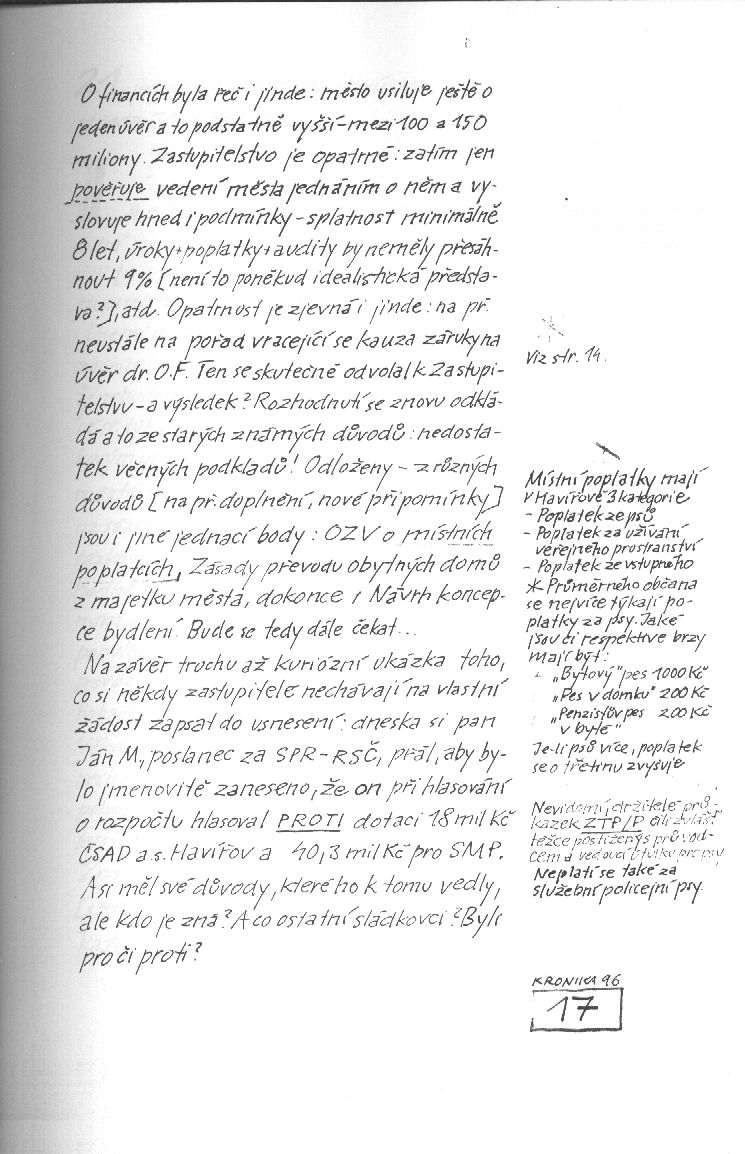 O financích byla řeč i jinde: město usiluje ještě o
jeden úvěr a to podstatně vyšší - mezi 100 a 150
miliony. Zastupitelstvo je opatrné: zatím jen
pověřuje vedení města jednáním o něm a vy-
slovuje hned i podmínky - splatnost minimálně
8 let, úroky + poplatky + audity by neměly přesáh-
nout 9% [není to poněkud idealistická předsta-
va?], atd. Opatrnost je zjevná i jinde: na př.
neustále na pořad vracející se kauza záruky na
úvěr dr. O.F. Ten se skutečně odvolal k Zastupi-
telstvu - a výsledek? Rozhodnutí se znovu odklá-
dá a to ze starých známých důvodů: nedosta-
tek věcných podkladů! Odloženy - z různých
důvodů [na př. doplnění, nové připomínky]
jsou i jiné jednací body: OZV o místních
poplatcích, Zásady převodu obytných domů
z majetku města, dokonce i Návrh koncep-
ce bydlení. Bude se tedy dále čekat...
Na závěr trochu až kuriózní ukázka toho,
co si někdy zastupitelé nechávají na vlastní
žádost zapsat do usnesení: dneska si pan
Ján M., poslanec za SPR-RSČ, přál, aby by-
lo jmenovitě zaneseno, že on při hlasování
o rozpočtu hlasoval PROTI dotaci 18 mil Kč
ČSAD a.s. Havířov a 40,3 mil Kč pro SMP.
Asi měl své důvody, které ho k tomu vedly,
ale kdo je zná? A co ostatní sládkovci? Byli
pro či proti?
Viz str. 14.
Místní poplatky mají
v Havířově 3 kategorie
- Poplatek ze psů
- Poplatek za užívání
veřejného prostranství
- Poplatek ze vstupného
* Průměrného občana
se nejvíce týkají po-
platky za psy. Jaké
jsou či respektive brzy
mají být:
- „Bytový" pes 1000 Kč
„Pes v domku" 200 Kč
„Penzistův pes 200 Kč
v bytě"
Je-li psů více, poplatek
se o třetinu zvyšuje
Nevidomí, držitelé prů-
kazek ZTP/P či zvlášť
těžce postižený s průvod-
cem a vedoucí útulku pro psy
Neplatí se také za
služební policejní psy.
KRONIKA 96
17